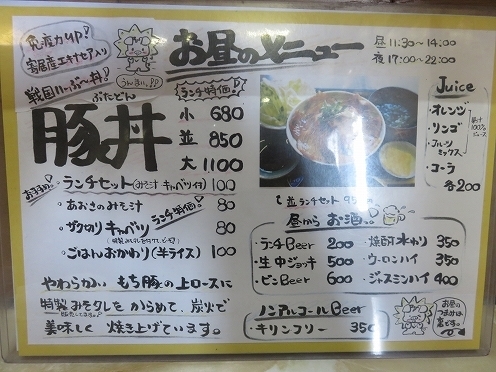 免疫力UP!
寄居産エキナセア入り
戦国い~ぶ~丼!
うんまい。
お昼のメニュー
昼 11:30~14:00
夜 17:00~22:00
ぶたどん
豚丼
ランチ特価!
小 680
並 850
大 1100
おすすめ
・ランチセット(みそ汁 キャベツ付) 100
・あおさのみそ汁 80
・ザク切りキャベツ 80
ランチ特価!
・ごはんおかわり(半ライス) 100
やわらかい もち豚の上ロースに
特製みそタレ からめて、炭火で
美味しく 焼き上げています。
Juice
・オレンジ
・リンゴ
・フルーツミックス
果汁100%ジュース
・コーラ
各200
並ランチセット 950
昼から お酒。
・ランチBeer 200
・生中ジョッキ 500
・ビンBeer 600
・焼酎水わり 350
・ウーロンハイ 350
・ジャスミンハイ 400
ノンアルコールBeer
・キリンフリー 350
お昼の
つまみは
裏です。